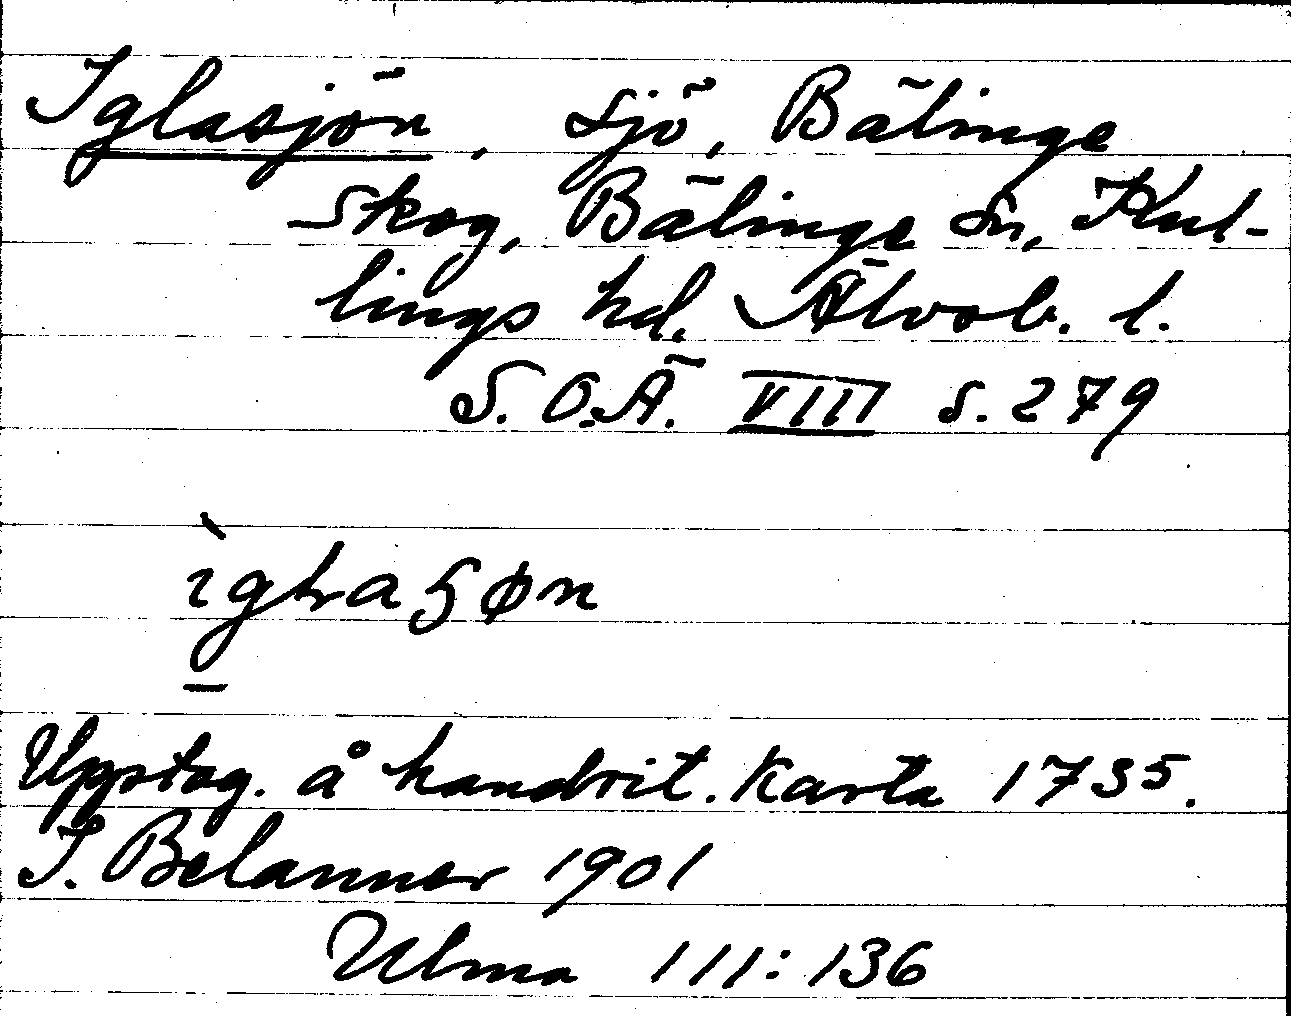 Iglasjön, sjö, Bälinge
skog, Bälinge sn, Kul-
lings hd. Älvsb. l.
S.O.Ä. VIII s. 279
ìglaʒøn
Uppstag. å handrit. Karta 1735.
J. Belanner 1901
Ulma 111:136